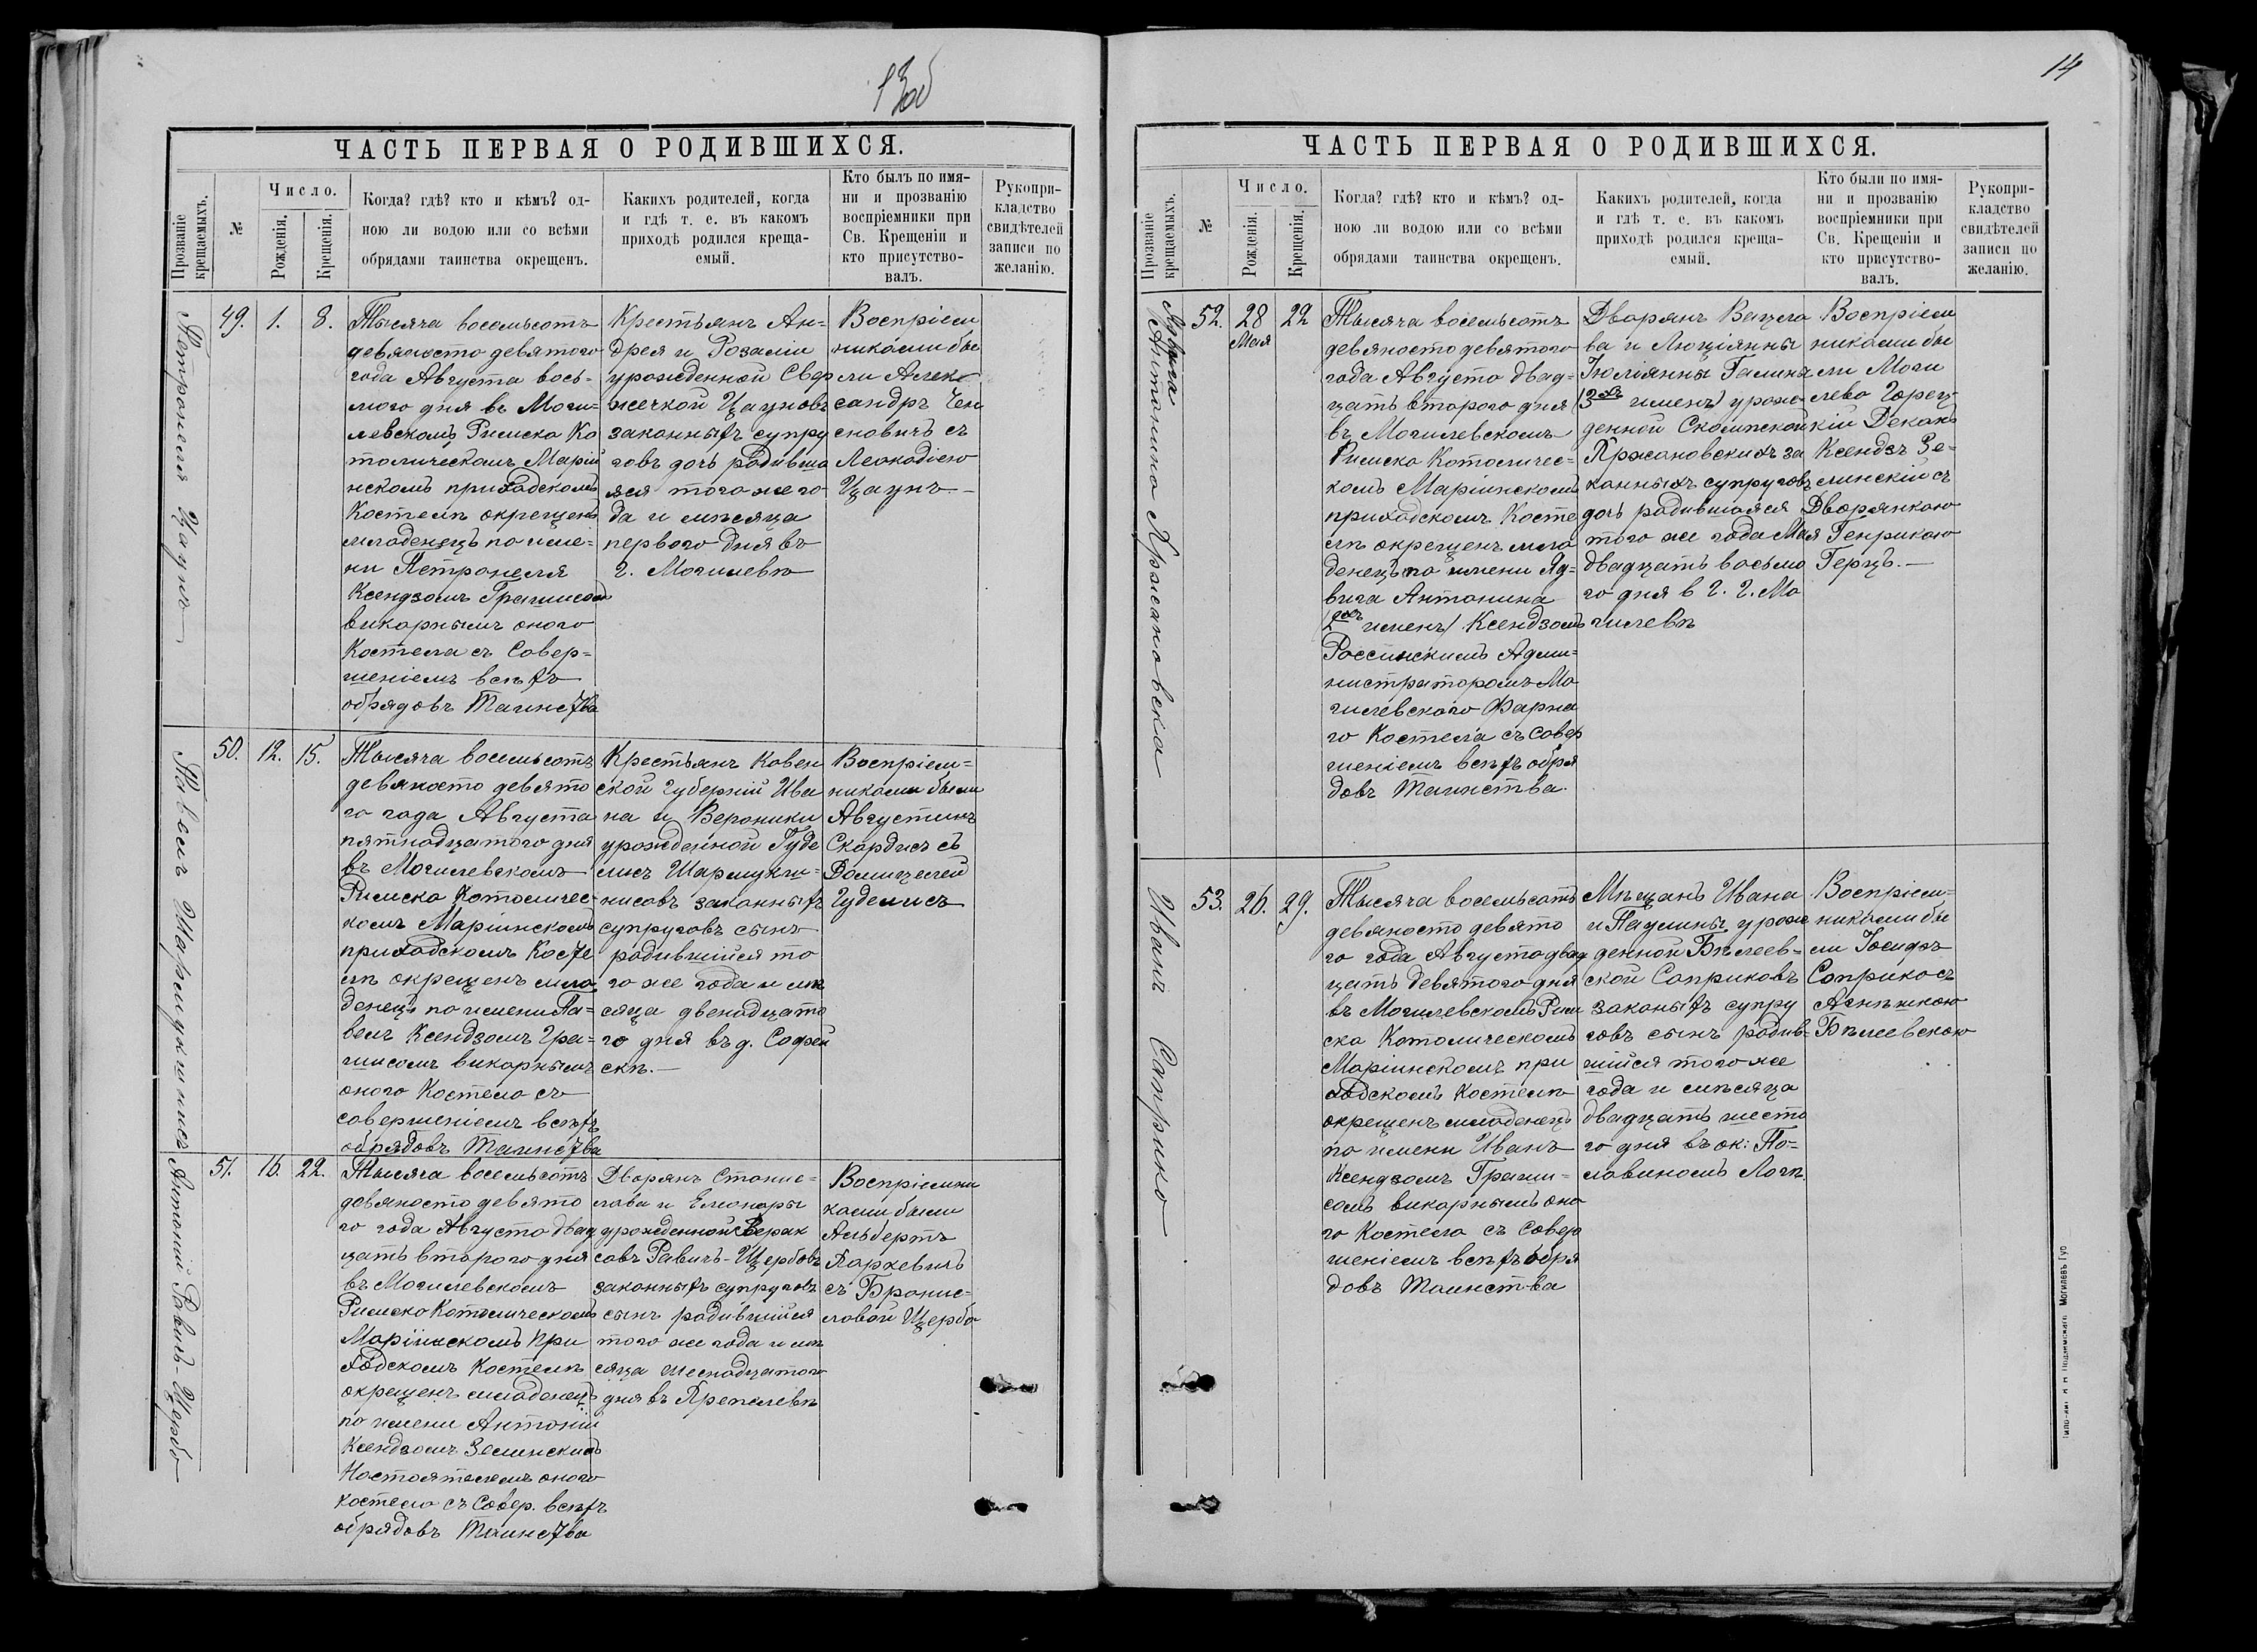 13об
ЧАСТЬ ПЕРВАЯ О РОДИВШИХСЯ.
Прозваніе крещаемыхъ.
№
Число.
Рожденія.
Крещенія.
Когда? гдѣ? кто и кѣмъ? од-
ною ли водою или со всѣми
обрядами таинства окрещенъ.
Какихъ родителей, когда
и гдѣ т. е. въ какомъ
приходѣ родился креща-
емый.
Кто былъ по имя-
ни и прозванію
воспріемники при
Св. Крещеніи и
кто присутство-
валъ.
Рукопри-
кладство
свидѣтелей
записи по
желанію.
Петронеля Цаунъ
49.
1.
8.
Тысяча восемьсотъ
девяносто девятого
года Августа вось-
мого дня въ Моги-
левскомъ Римско Ка
толическомъ Марій
нскомъ приходскомъ
Костелѣ окрещенъ
младенецъ по име-
ни Петронеля
Ксендзомъ
викарнымъ оного
Костела съ Совер-
шеніемъ всѣхъ
обрядовъ Таинства
Крестьянъ Ан-
дрея и Розаліи
урожденной Свер
жечкой Цауновъ
законныхъ супру
говъ дочь родивша
яся того же го
да и мѣсяца
первого дня въ
г. Могилевѣ
Воспріем
никами бы
ли Алек
сандръ Чен
сновичъ съ
Леокадіею
Цаунъ.—
Павелъ Шармукшнисъ
50.
12.
15.
Тысяча восемьсотъ
девяносто девято
го года Августа
пятнадцатого дня
въ Могилевскомъ
Римско Католичес-
комъ Маріинскомъ
приходскомъ Косте
лѣ окрещенъ мла
денецъ по имени Па-
велъ Ксендзомъ Гра-
жисомъ викарнымъ
оного Костела съ
совершеніемъ всѣхъ
обрядовъ Таинства
Крестьянъ Ковен
ской Губерніи Ива
на и Вероники
урожденной Гуде
лисъ Шармукш-
нисовъ законныхъ
супруговъ сынъ
родившійся то
го же года и мѣ
сяца двенадцато
го дня въ д. Софей
скѣ.—
Воспріем-
никами были
Августинъ
Скардисъ съ
Домицелей
Гуделисъ
Антоній Равичъ-Щербо
51.
16.
22.
Тысяча восемьсотъ
девяносто девято
го года Августа двад
цать второго дня
въ Могилевскомъ
Римско Католическомъ
Маріинскомъ при
ходскомъ Костелѣ
окрещенъ младенецъ
по имени Антоній
Ксендзомъ Зелинскимъ
Настоятелемъ оного
костела съ Совер. всѣхъ
обрядовъ Таинства
Дворянъ Станис-
лава и Элеонары
урожденной Версак
совъ Равичъ-Щербовъ
законныхъ супруговъ
сынъ родившійся
того же года и мѣ
сяца шеснадцатого
дня въ Препелевѣ
Воспріемни
ками были
Альбертъ
Паркевичъ
съ Бронис-
лавой Щербо
14
ЧАСТЬ ПЕРВАЯ О РОДИВШИХСЯ.
Прозваніе крещаемыхъ.
№
Число.
Рожденія.
Крещенія.
Когда? гдѣ? кто и кѣмъ? од-
ною ли водою или со всѣми
обрядами таинства окрещенъ.
Какихъ родителей, когда
и гдѣ т. е. въ какомъ
приходѣ родился креща-
емый.
Кто были по имя-
ни и прозванію
воспріемники при
Св. Крещеніи и
кто присутство-
валъ.
Рукопри-
кладство
свидѣтелей
записи по
желанію.
Ядвига
Антонина Хржановска
52.
28
Мая
22
Тысяча восемьсотъ
девяносто девятого
года Августа двад-
цать второго дня
въ Могилевскомъ
Римско Католичес-
комъ Маріинскомъ
приходскомъ Косте
лѣ окрещенъ мла
денецъ по имени Яд-
вига Антонина
(2ухъ именъ) Ксендзомъ
Россинскимъ Адми-
нистраторомъ Мо
гилевского Фарна
го Костела съ совер
шеніемъ всѣхъ обря
довъ Таинства.
Дворянъ Вацла
ва и Люціянны
Юліянны Галины
(3хъ именъ) урож-
денной Скомпской
Хржановскихъ за
конныхъ супруговъ
дочь родившаяся
того же года Мая
двадцать восьмо
го дня в г. г. Мо
гилевѣ
Воспріем
никами бы
ли Моги
лево Горец
кій Деканъ
Ксендзъ Зе-
линскій съ
Дворянкою
Генрикою
Герцъ.—
Иванъ Саприко
53.
26.
29.
Тысяча восемьсотъ
девяносто девято
го года Августа двад
цать девятого дня
въ Могилевскомъ Рим
ско Католическомъ
Маріинскомъ при
ходскомъ Костелѣ
окрещенъ младенецъ
по имени Иванъ
Ксендзомъ Гражи-
сомъ викарнымъ оно
го Костела съ Совер
шеніемъ всѣхъ обря
довъ Таинства
Мѣщанъ Ивана
и Паулины урож
денной Бѣлеев-
ской Саприковъ
законыхъ супру
говъ сынъ родив-
шійся того же
года и мѣсяца
двадцать шесто
го дня въ ок: По-
лавиномъ Логѣ.
Воспріем-
никами бы
ли Іосифъ
Саприко съ
Агнѣшкою
Бѣлеевскою
Могилевъ Губ